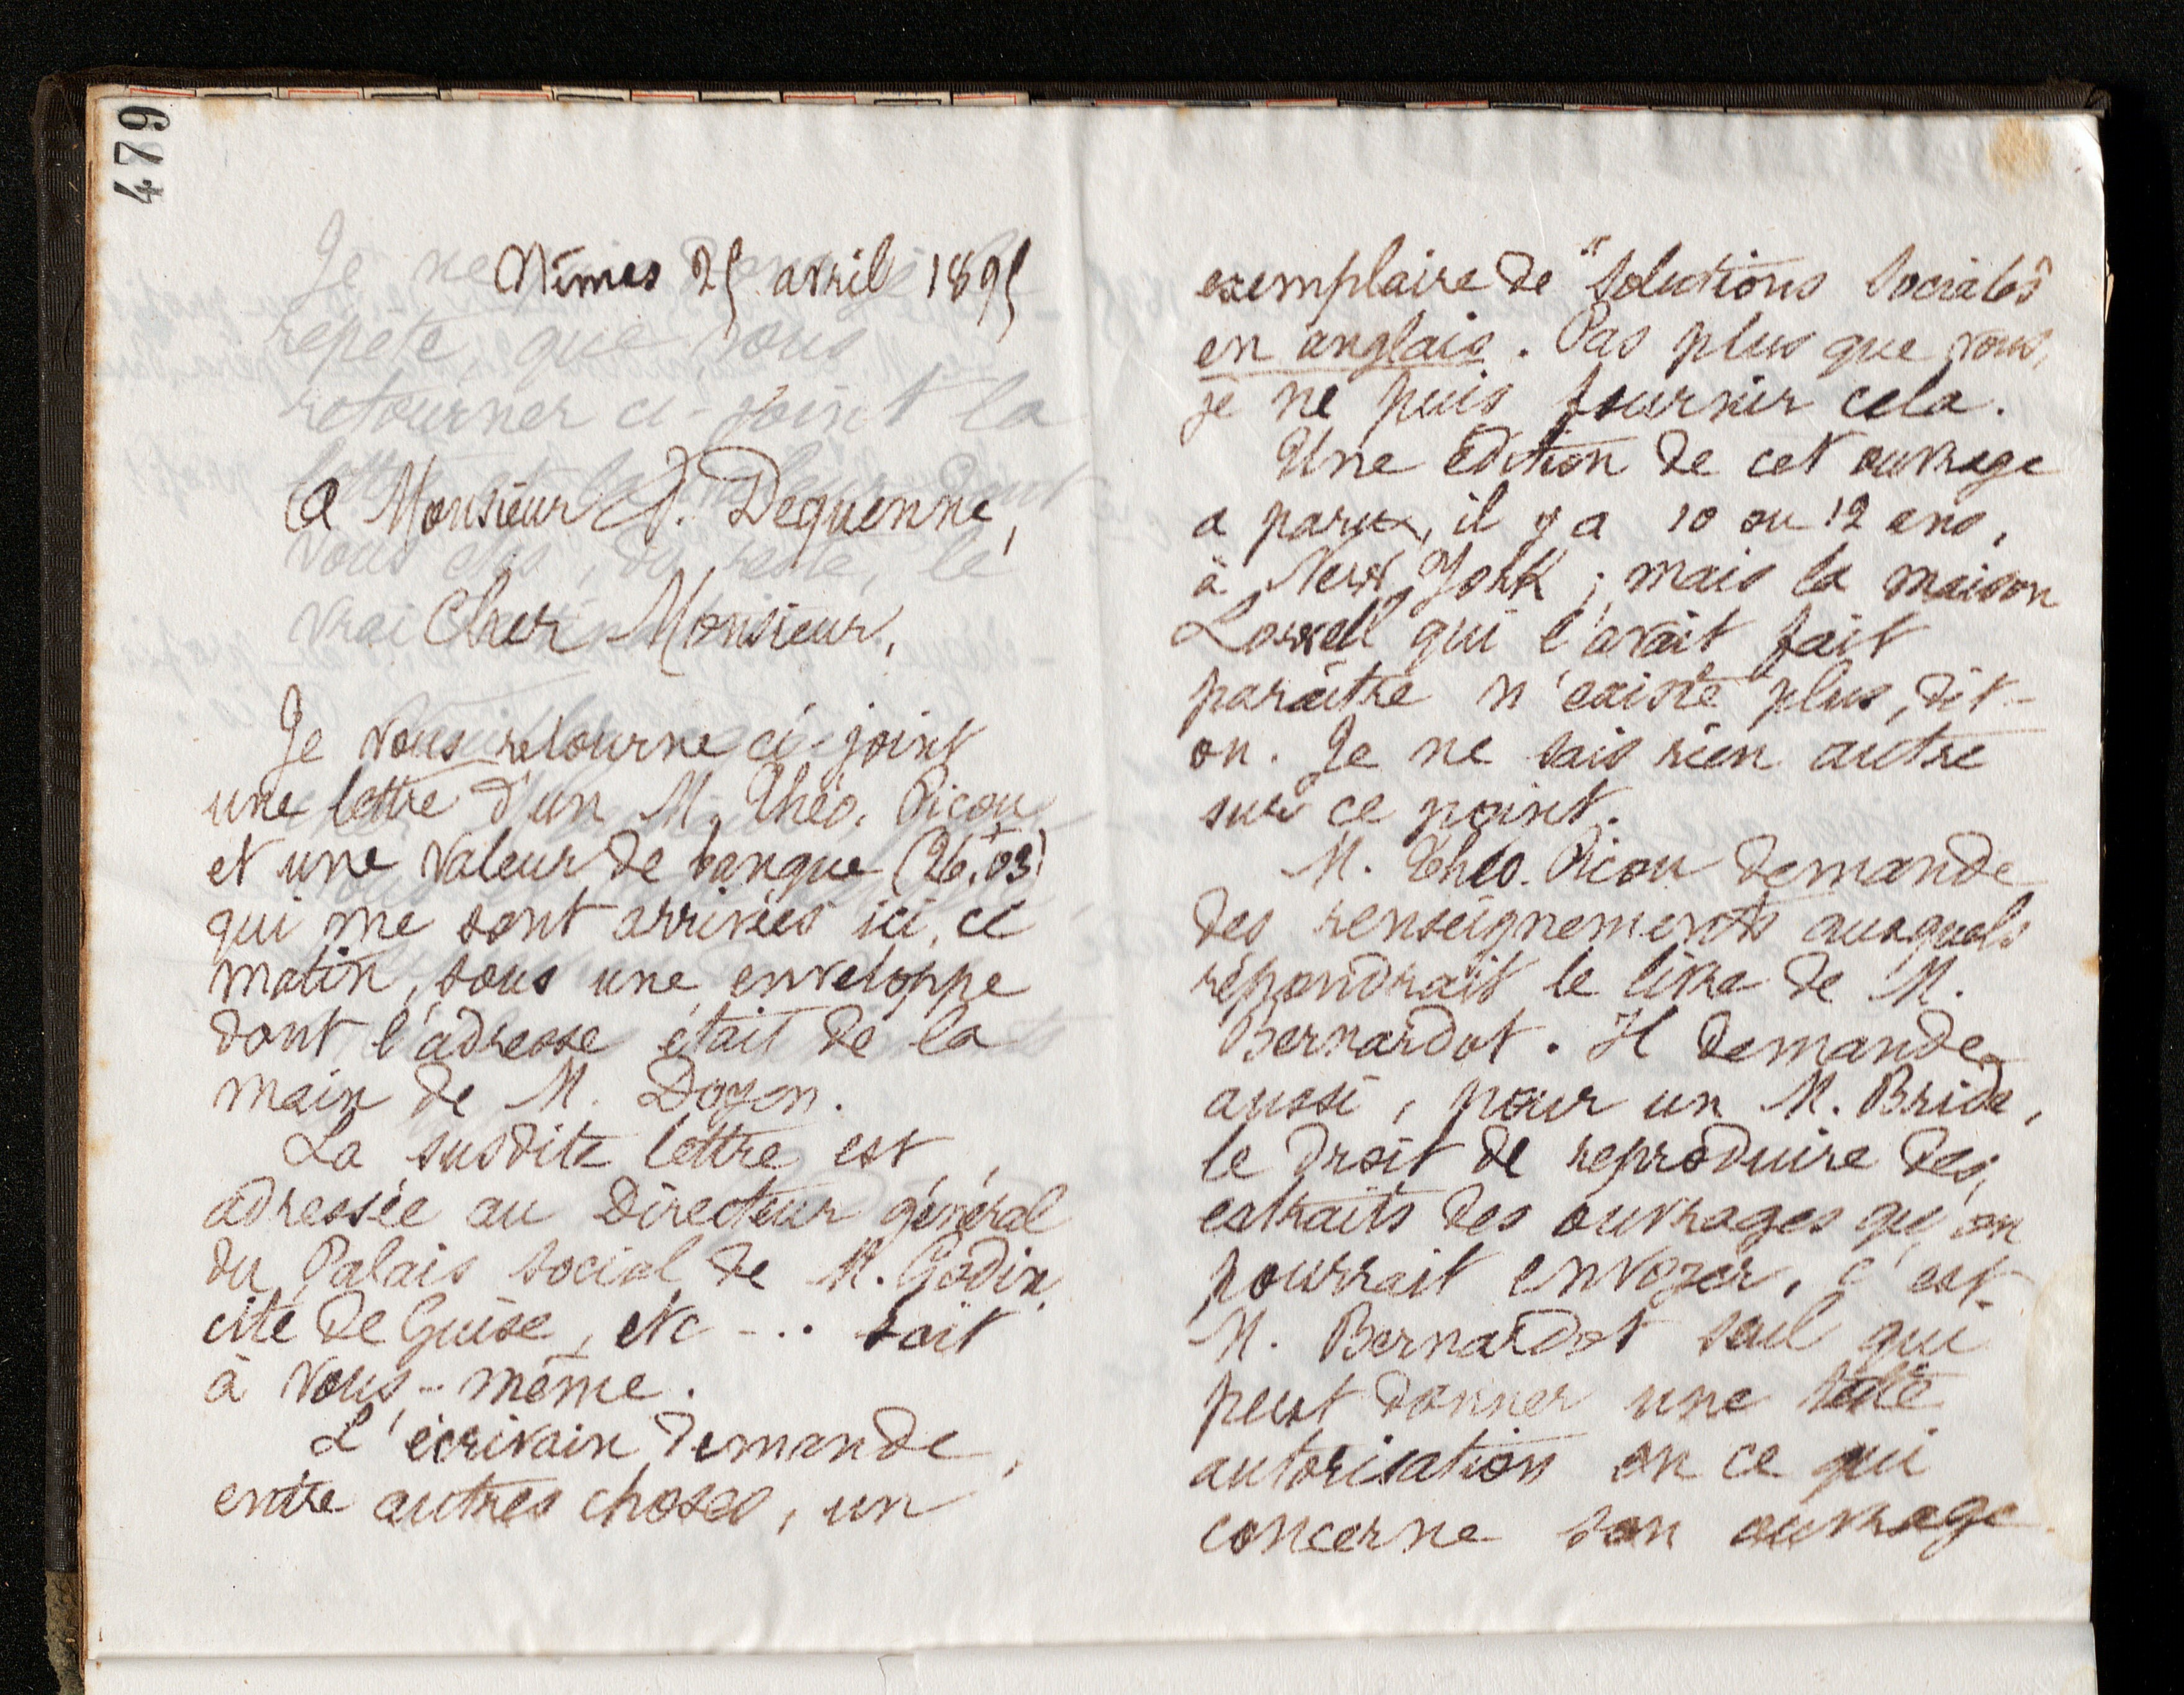 479
Nîmes 25 avril 1895
A Monsieur A. Dequenne,
Cher Monsieur,
Je vous retourne ci-joint
une lettre d'un M. Théo. Picou
et une valeur de banque (26f,03)
qui me sont arrivées ici, ce
matin, sous une enveloppe
dont l'adresse était de la
main de M. Doyen.
La susdite lettre est
adressée au Directeur général
du Palais social de M. Godin
cité de Guise, etc... soit
à vous-même.
L'écrivain demande,
entre autres choses, un
exemplaire de "Solutions Sociales"
en anglais. Pas plus que vous,
je ne puis fournir cela.
Une édition de cet ouvrage
a paru, il y a 10 ou 12 ans,
à New York; mais la maison
Lowell qui l'avait fait
paraître n'existe plus, dit-
on. Je ne sais rien autre
sur ce point.
M. Théo. Picou demande
des renseignements auxquels
répondrait le livre de M.
Bernardot. Il demande
aussi, pour un M. Bride,
le droit de reproduire des
extraits des ouvrages qu'on
pourrait envoyer. C'est
M. Bernardot seul qui
peut donner une telle
autorisation en ce qui
concerne son ouvrage